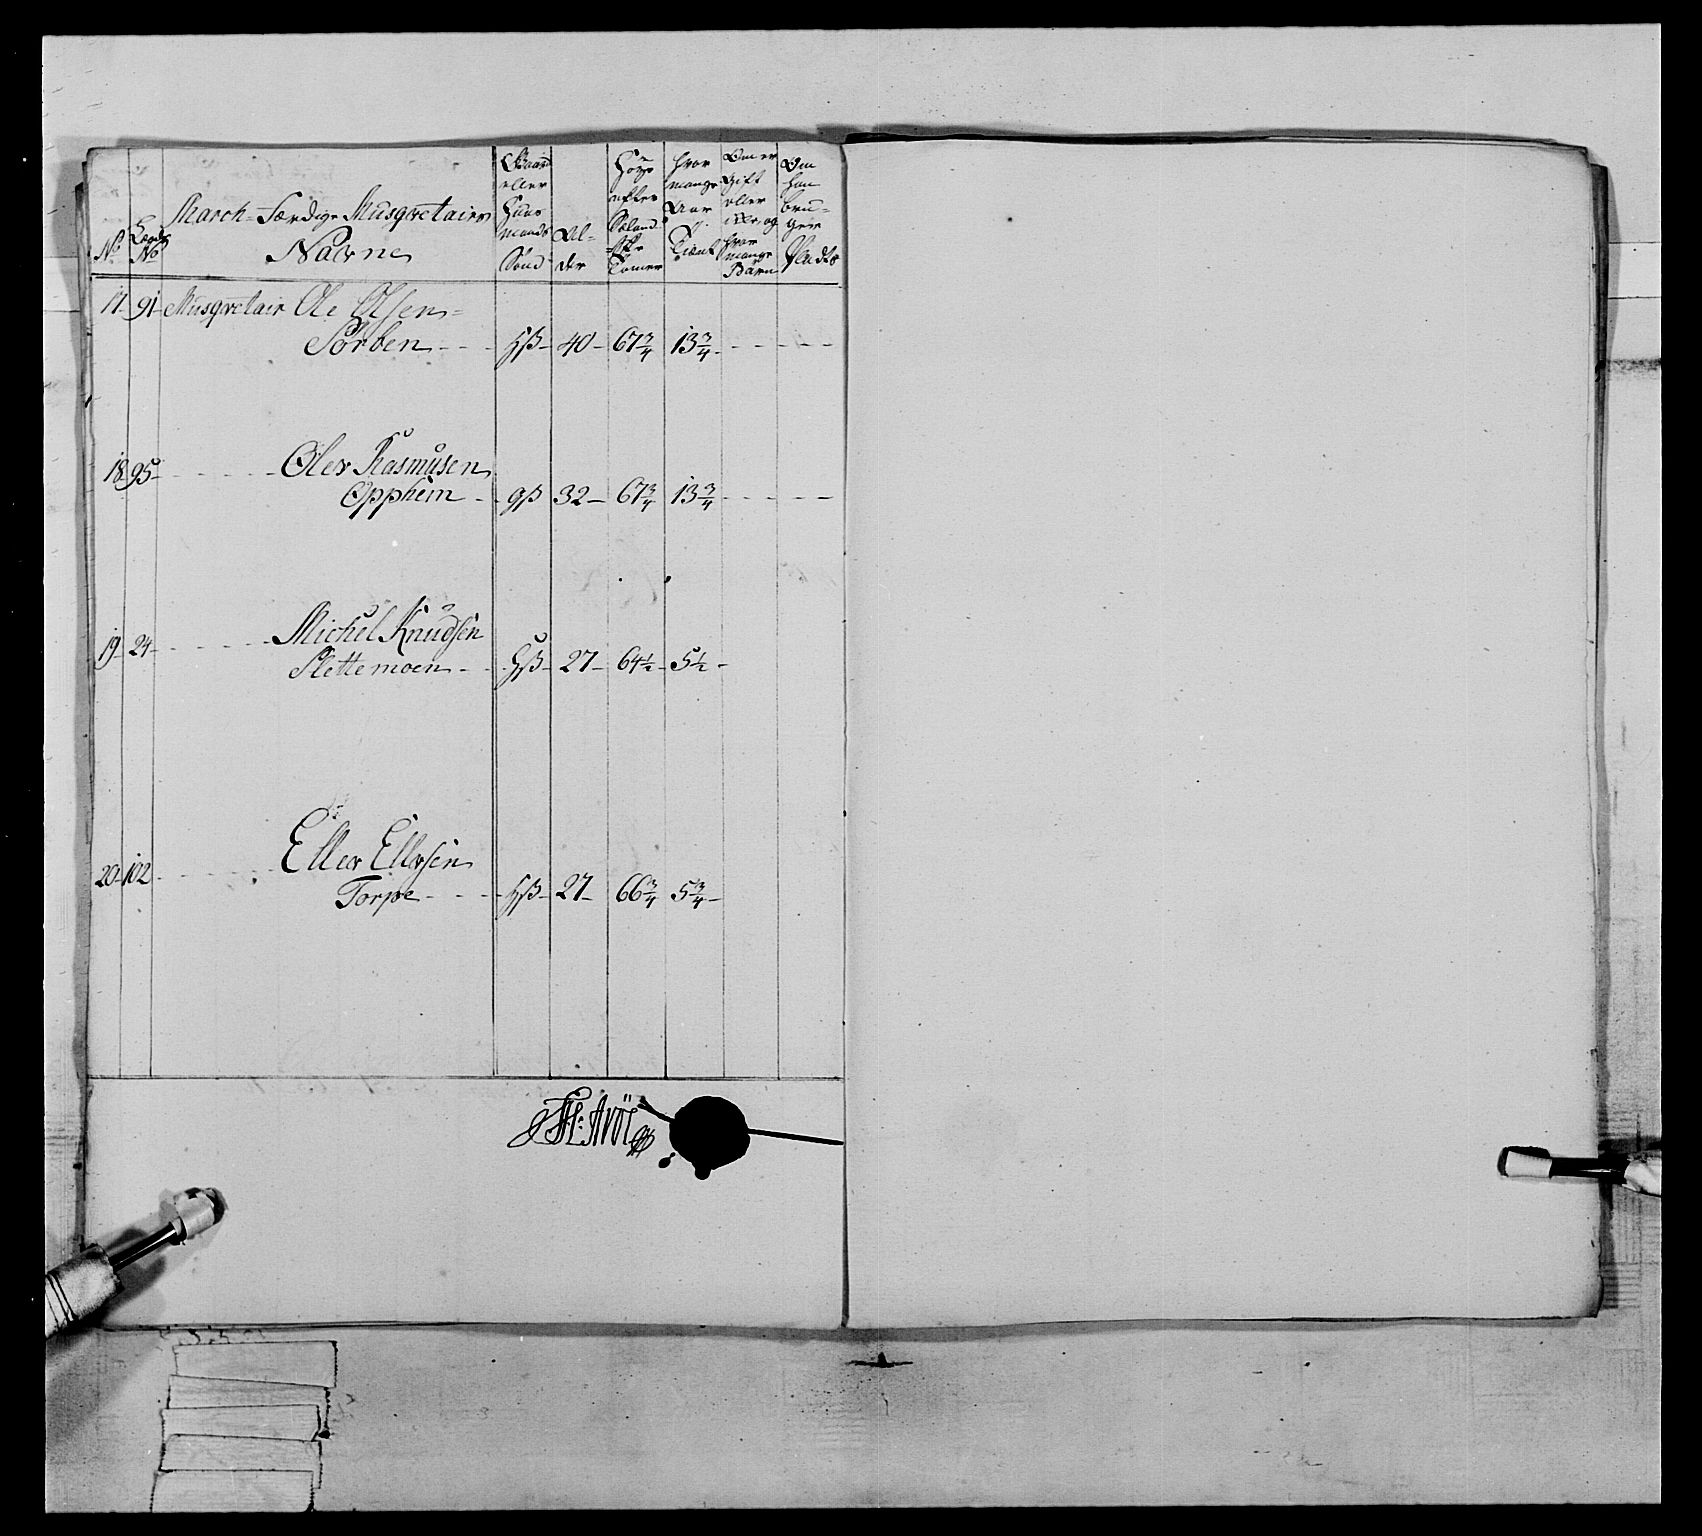 No
Lægds No
March-Færdige Musqvetairs
Navne
Gaard eller Huus mands Sönd
Al-der
Höye efter Siæland-ske Tomer
hvor mange Aar Tient
Om er Gift eller ikke, og hvor mange Börn
Om han bru-ger Plads
17 91 Musqvetair Ole Olsen
Sörben - - hß - 40 - 67 3/4 13 3/4 - - - -
18 95 - - - - Olev Rasmusen
Oppheim - gß 32 - 67 3/4 13 3/4 - - - -
19 24 - - - - Michel Knudsen
Slettemoen - - hß - 27 - 64 1/2 - 5 1/2 -
20 102 - - - - Ellev Ellevsen
Torpe - - - hß - 27 - 66 3/4 5 3/4 -